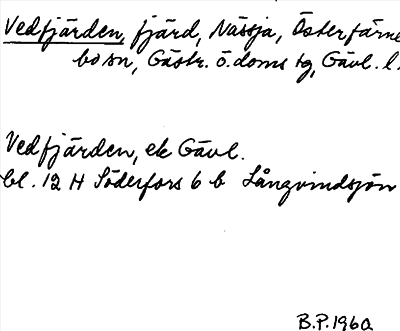 Vedfjärden, fjärd, Nässja, Österfärne
bo sn, Gästr. ö. doms tg, Gävl. l.
Vedfjärden, ek Gävl.
bl. 12 H Söderfors 6 b Långvindsjön
B.P. 1960